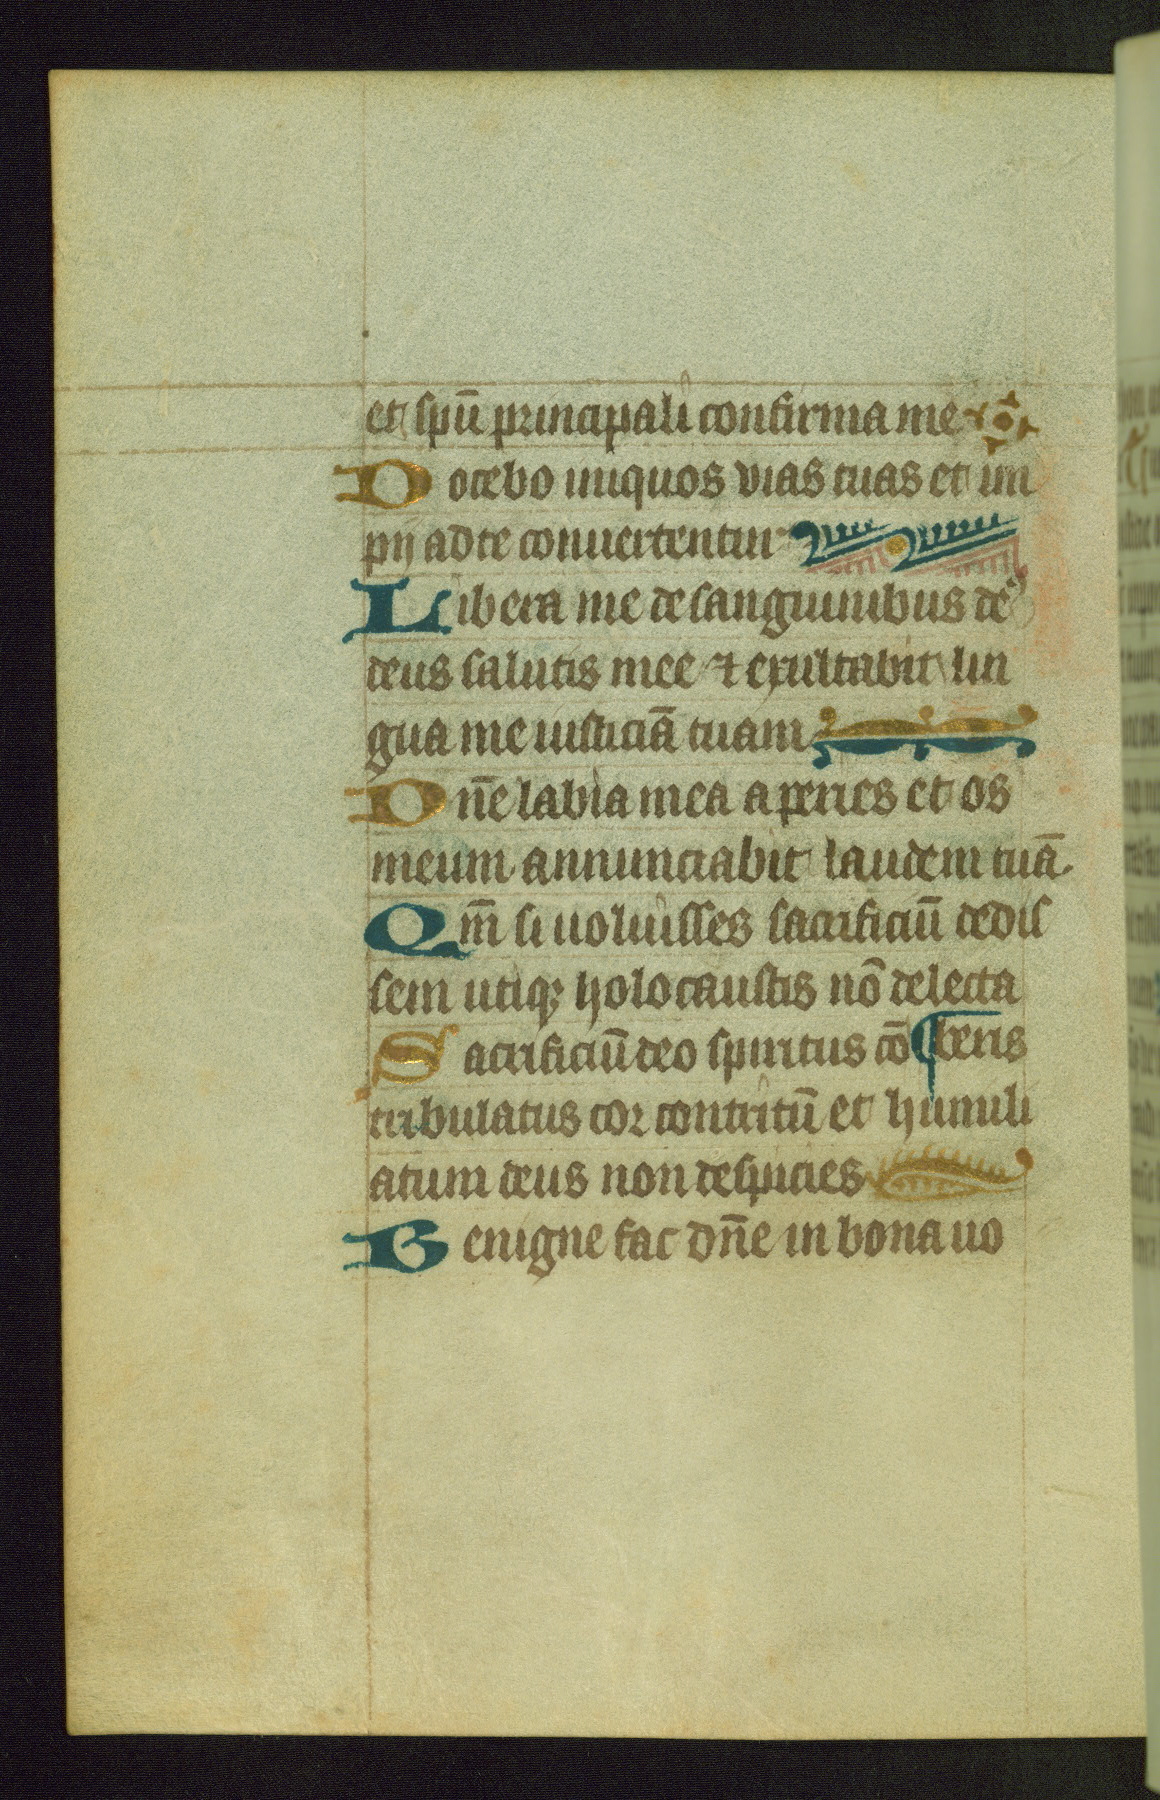 et spū principali confirma me
Docebo iniquos vias tuas et im
pij ad te conuertentur
Libera me de sanguinibus de9
deus salutis mee ⁊ exultabit lin
gua me iusticiā tuam
Dn̄e labia mea aperies et os
meum annunciabit laudem tuā
Qm̄ si uoluisses sacrificiū dedis
sem utiqꝫ holocaustis nō delecta
Sacrificiū deo spiritus cō ¶ beris
tribulatus cor contritū et humili
atum deus non despicies
Benigne fac dn̄e in bona uo